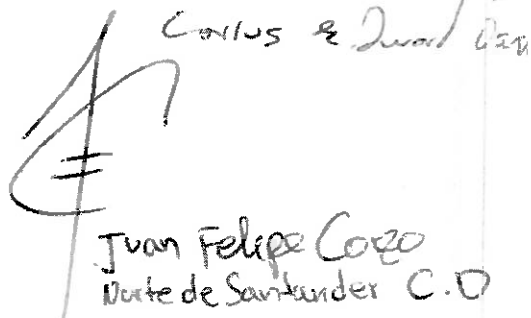 Carlos
Juan Felipe Corzo
Norte de Santander C.D